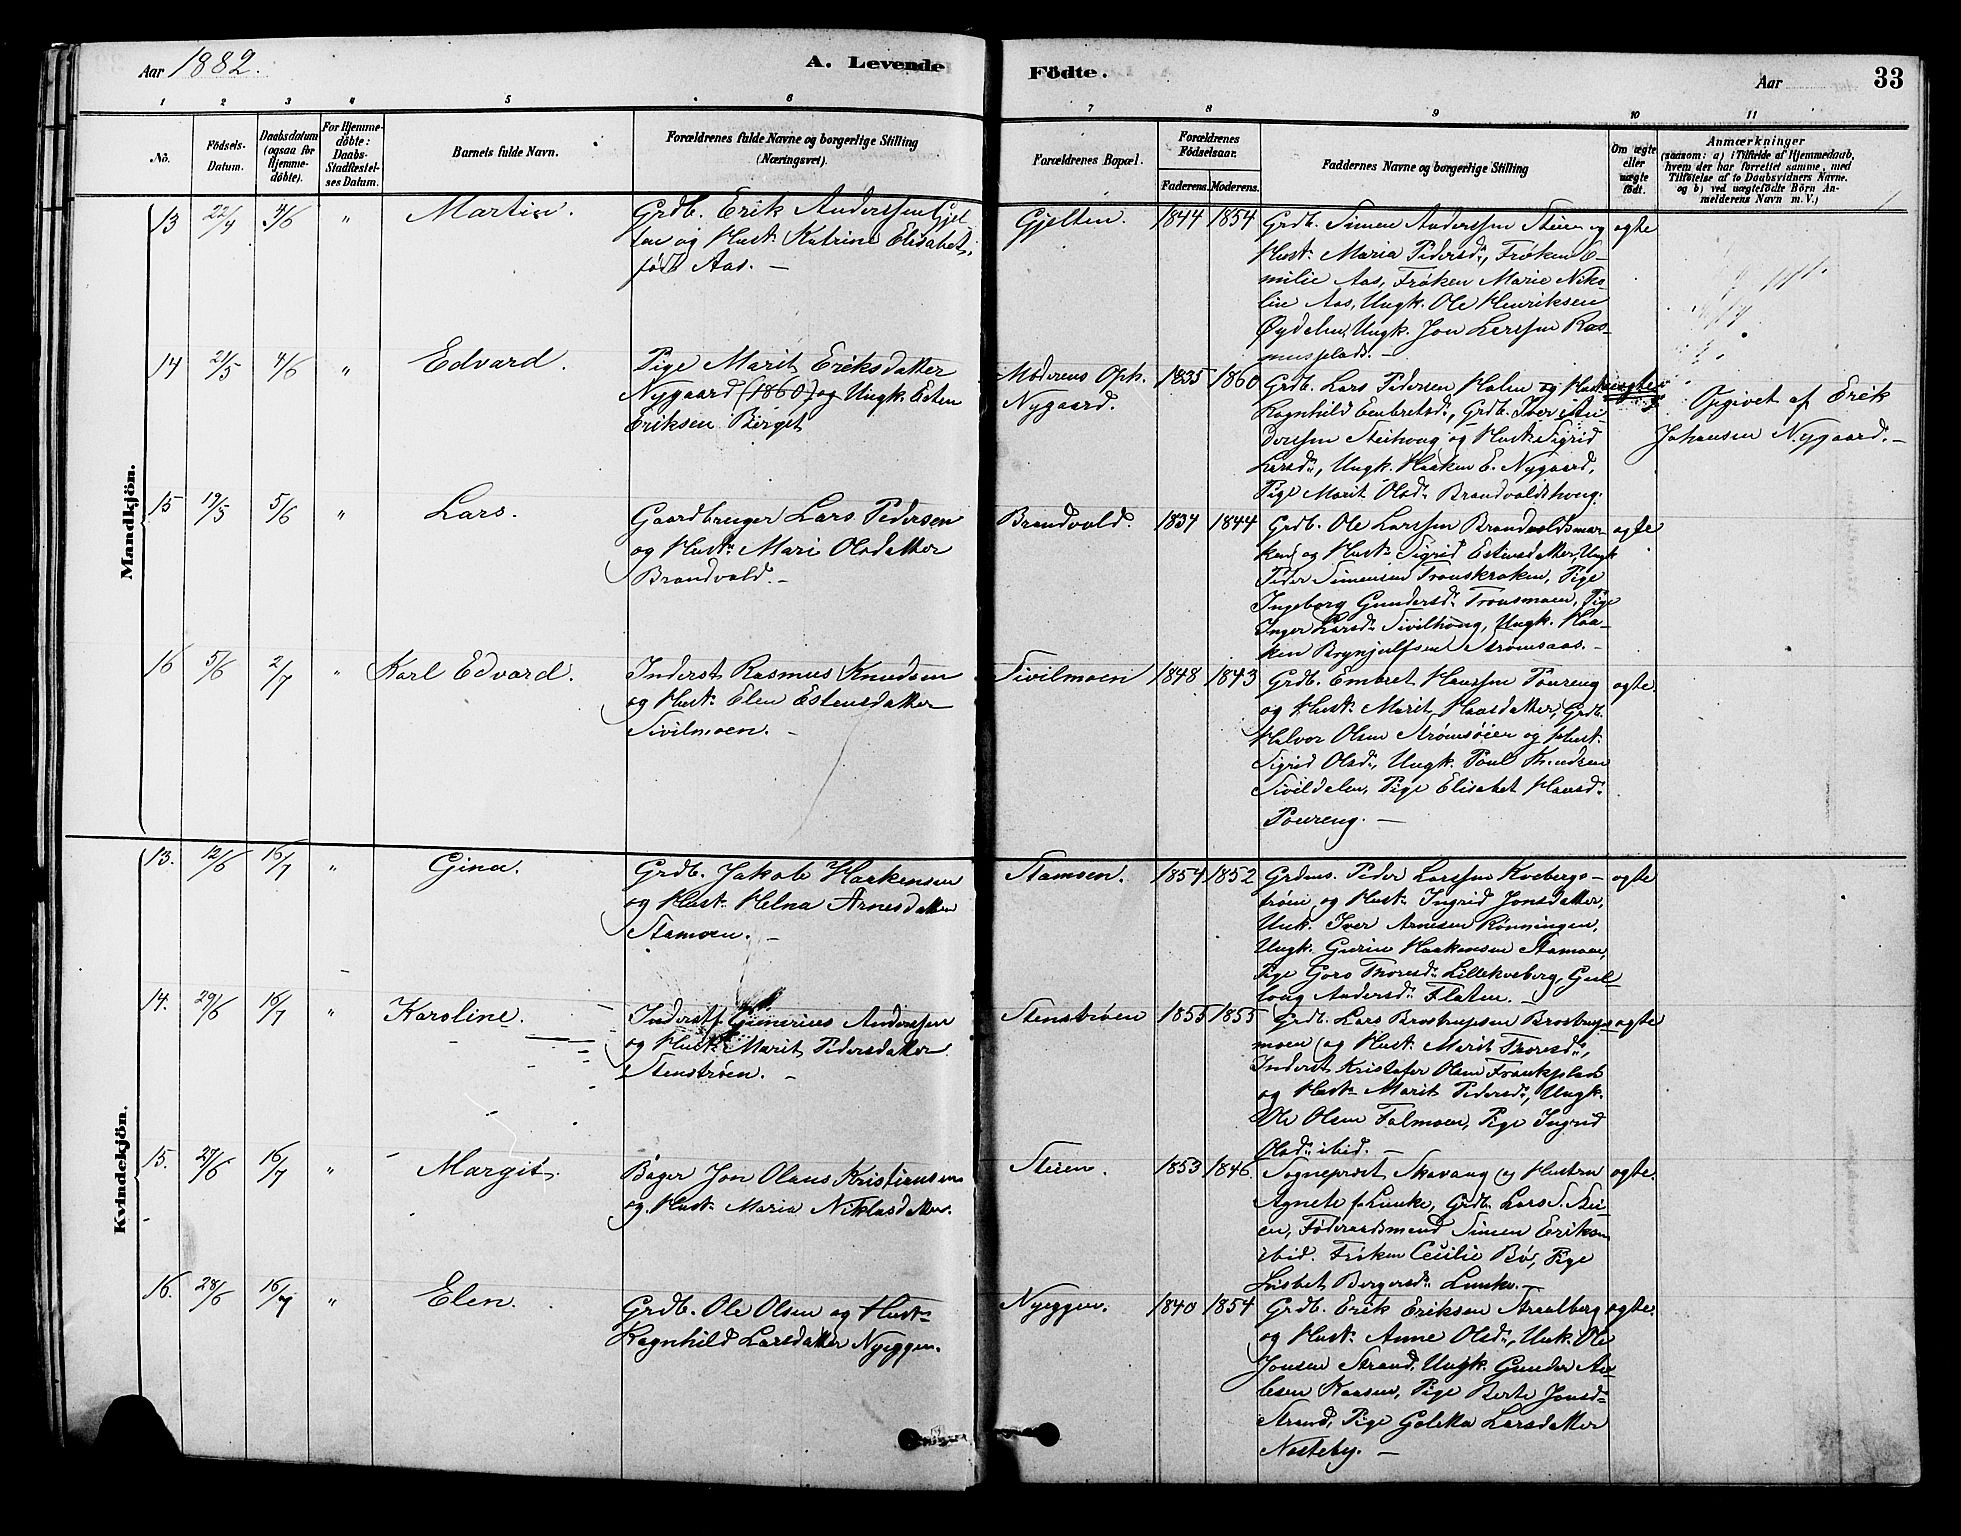 Aar 1882.
A. Levende
Födte.
Aar
33
1 2 3 4 5 6
7 8 9 10 11
No.
Födsels-
Datum.
Daabsdatum
(ogsaa for
Hjemme-
döbte).
For Hjemme-
döbte:
Daabs-
Stadfæstel-
ses Datum.
Barnets fulde Navn.
Forældrenes fulde Navne og borgerlige Stilling
(Næringsvei).
Forældrenes Bopæl.
Forældrenes
Födselsaar.
Faderens. Moderens.
Faddernes Navne og borgerlige Stilling
Om ægte
eller
uægte
födt.
Anmærkninger
(saasom: a) i Tilfælde af Hjemmedaab,
hvem der har forrettet samme, med
Tilföielse af to Daabsvidners Navne.
og b) ved uægtefödte Börn An-
melderens Navn m. V.)
Mandkjön.
13
22/4
4/6
"
Martin.
Grdb. Erik Anderssen Gjel
ten og Hust. Katrine Elisabet,
født Aas. —
Gjelten.
1844
1854
Grdb. Simen Anderssen Steien og
Hust. Maria Pedersd., Frøken E-
milie Aas, Frøken Marie Niko-
line Aas, Ungk. Ole Henriksen
Øydalen, Ungk. Jon Larssen Ras-
musplads. —
ægte
14
21/5
4/6
"
Edvard.
Pige Marit Eriksdatter
Nygaard (1860) og Ungk. Esten
Eriksen Berget
Moderens Oph.
Nygaard.
1835
1860
Grdb. Lars Pedersen Holen og Hust
Ragnhild Embretsd., Grdb. Iver An-
derssen Steihoug og Hust. Sigrid
Larsd., Ungk. Haaken E. Nygaard,
Pige Marit Olsd. Brandvoldshoug.
uægte
Opgivet af Erik
Johansen Nygaard. —
15
19/5
5/6
"
Lars.
Gaardbruger Lars Pedersen
og Hust. Mari Olsdatter
Brandvold. —
Brandvold.
1837
1844
Grdb. Ole Larssen Brandvoldsmar-
ken og Hust. Sigrid Estensdatter, Ungk
Peder Simensen Tronskroken, Pige
Ingeborg Gundersd. Tronsmoen, Pige
Inger Larsd. Sivilhoug, Ungk. Haa-
ken Brynjulfsen Strømsaas. —
ægte
16
5/6
2/7
"
Karl Edvard.
Inderst Rasmus Knudsen
og Hust. Elen Estensdatter
Sivilmoen. —
Sivilmoen
1848
1843
Grdb. Embret Hanssen Poureng
og Hust. Marit Hansdatter, Grdb.
Halvor Olsen Strømsøien og Hust.
Sigrid Olsd., Ungk. Poul Knudsen
Sivildalen, Pige Elisabet Hansd.
Poureng. —
ægte.
Kvindekjön.
13.
12/6
16/7
"
Gina.
Grdb. Jakob Haakensen
og Hust. Helna Arnesdatter
Stamoen. —
Stamoen.
1854
1852
Grdms. Peder Larssen Kvebergs-
trøen og Hust. Ingrid Jonsdatter,
Unk. Iver Arnesen Rønningen,
Ungk. Haakensen Stamoen,
Pige Goro Thoresd. Lillekveberg, Gul-
loug Andersd. Flaten. —
ægte
14.
29/6
16/7
"
Karoline.
Inderst Gunerius Anderssen
og Hust. Marit Pedersdatter
Stenstrøen. —
Stenstrøen
1855
1855
Grdb. Lars Brostrupsen Brostrups
moen og Hust. Marit Thoresd.,
Inderst Kristofer Olsen
og Hust. Marit Pedersd., Ungk.
Ole Olsen Talmoen, Pige Ingrid
Olsd. ibid. —
ægte
15.
27/6
16/7
"
Margit.
Bager Jon Olaus Kristiansen
og Hust. Maria Niklasdatter.
Steien.
1853
1846.
Sogneprest Skavang og Hustru
Agnete f. Lunke, Grdb. Lars S. Stei-
en, Føderaadsmand Simen Eriksen
ibid. Frøken Cecilie Bø, Pige
Lisbet Bergersd. Lunke. —
ægte.
16.
28/6
16/7
"
Elen.
Grdb. Ole Olsen og Hust.
Ragnhild Larsdatter Nyeggen.
Nyeggen.
1840
1854
Grdb. Erik Eriksen Straalberg
og Hust. Anne Olsd., Unk. Ole
Jonsen Strand, Ungk. Gunder
Kaasen, Pige Berte Jonsd.
Strand, Pige Goleka Larsdatter
Nosteby. —
ægte.